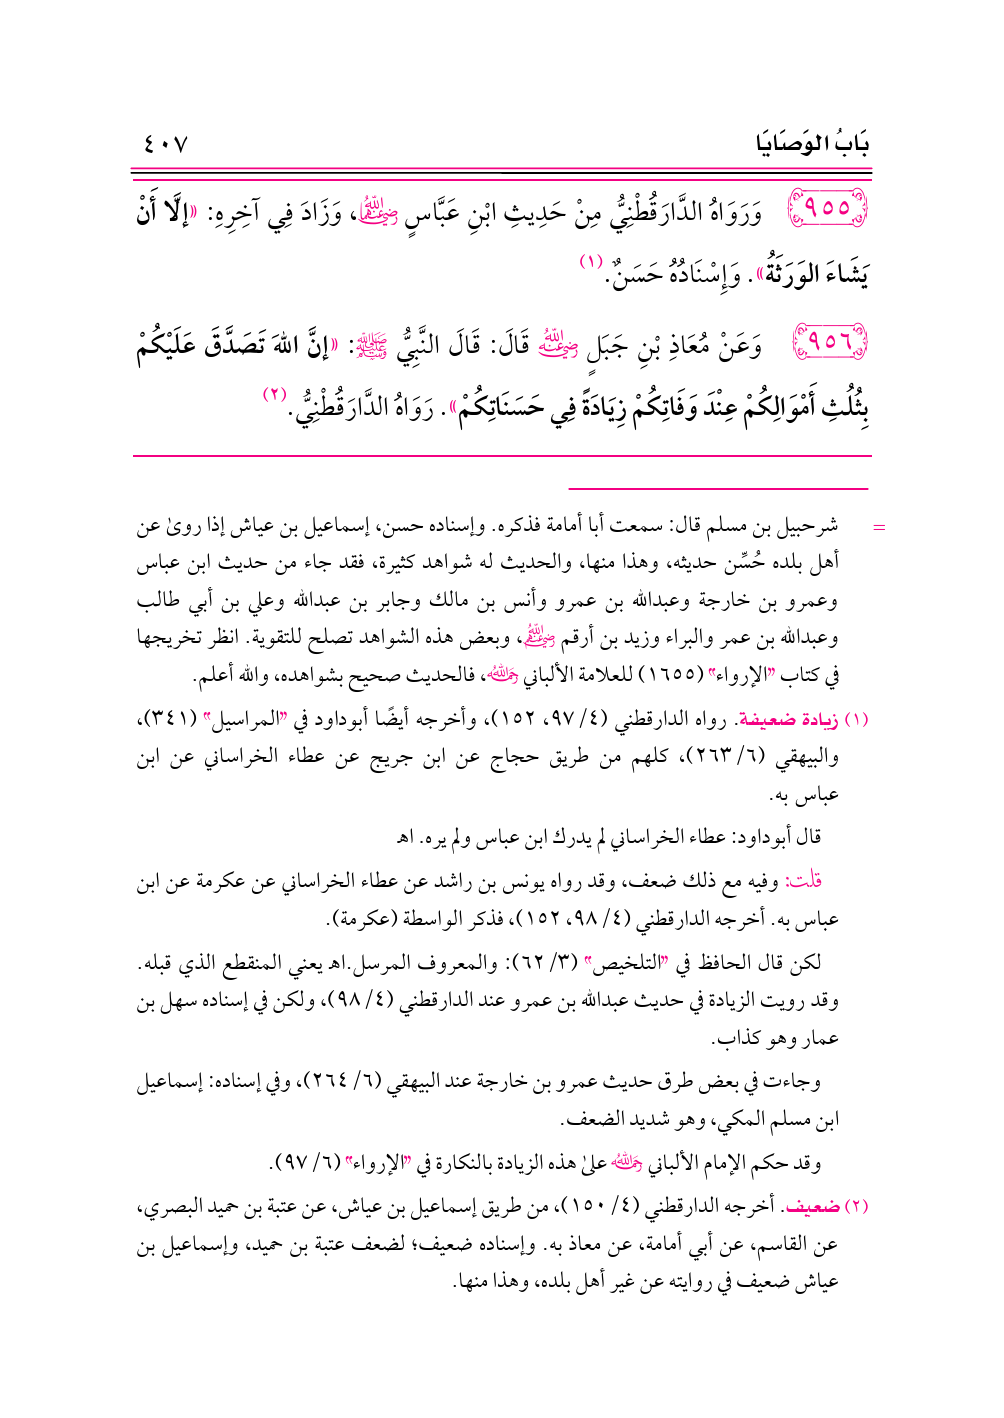 بَابُ الوَصَايَا ٤٠٧
٩٥٥ وَرَوَاهُ الدَّارَقُطْنِيُّ مِنْ حَدِيثِ ابْنِ عَبَّاسٍ رضي الله عنهما، وَزَادَ فِي آخِرِهِ: «إلَّا أَنْ
يَشَاءَ الوَرَثَةُ». وَإِسْنَادُهُ حَسَنٌ.(١)
٩٥٦ وَعَنْ مُعَاذِ بْنِ جَبَلٍ رضي الله عنه قَالَ: قَالَ النَّبِيُّ ﷺ: «إنَّ اللهَ تَصَدَّقَ عَلَيْكُمْ
بِثُلُثِ أَمْوَالِكُمْ عِنْدَ وَفَاتِكُمْ زِيَادَةً فِي حَسَنَاتِكُمْ». رَوَاهُ الدَّارَقُطْنِيُّ.(٢)
= شرحبيل بن مسلم قال: سمعت أبا أمامة فذكره. وإسناده حسن، إسماعيل بن عياش إذا روىٰ عن
أهل بلده حُسِّن حديثه، وهذا منها، والحديث له شواهد كثيرة، فقد جاء من حديث ابن عباس
وعمرو بن خارجة وعبدالله بن عمرو وأنس بن مالك وجابر بن عبدالله وعلي بن أبي طالب
وعبدالله بن عمر والبراء وزيد بن أرقم رضي الله عنهم، وبعض هذه الشواهد تصلح للتقوية. انظر تخريجها
في كتاب "الإرواء" (١٦٥٥) للعلامة الألباني رحمه الله، فالحديث صحيح بشواهده، والله أعلم.
(١) زيادة ضعيفة. رواه الدارقطني (٤/ ٩٧، ١٥٢)، وأخرجه أيضًا أبوداود في "المراسيل" (٣٤١)،
والبيهقي (٦/ ٢٦٣)، كلهم من طريق حجاج عن ابن جريج عن عطاء الخراساني عن ابن
عباس به.
قال أبوداود: عطاء الخراساني لم يدرك ابن عباس ولم يره. اﻫ
قلت: وفيه مع ذلك ضعف، وقد رواه يونس بن راشد عن عطاء الخراساني عن عكرمة عن ابن
عباس به. أخرجه الدارقطني (٤/ ٩٨، ١٥٢)، فذكر الواسطة (عكرمة).
لكن قال الحافظ في "التلخيص" (٣/ ٦٢): والمعروف المرسل.اﻫ يعني المنقطع الذي قبله.
وقد رويت الزيادة في حديث عبدالله بن عمرو عند الدارقطني (٤/ ٩٨)، ولكن في إسناده سهل بن
عمار وهو كذاب.
وجاءت في بعض طرق حديث عمرو بن خارجة عند البيهقي (٦/ ٢٦٤)، وفي إسناده: إسماعيل
ابن مسلم المكي، وهو شديد الضعف.
وقد حكم الإمام الألباني رحمه الله علىٰ هذه الزيادة بالنكارة في "الإرواء" (٦/ ٩٧).
(٢) ضعيف. أخرجه الدارقطني (٤/ ١٥٠)، من طريق إسماعيل بن عياش، عن عتبة بن حميد البصري،
عن القاسم، عن أبي أمامة، عن معاذ به. وإسناده ضعيف؛ لضعف عتبة بن حميد، وإسماعيل بن
عياش ضعيف في روايته عن غير أهل بلده، وهذا منها.